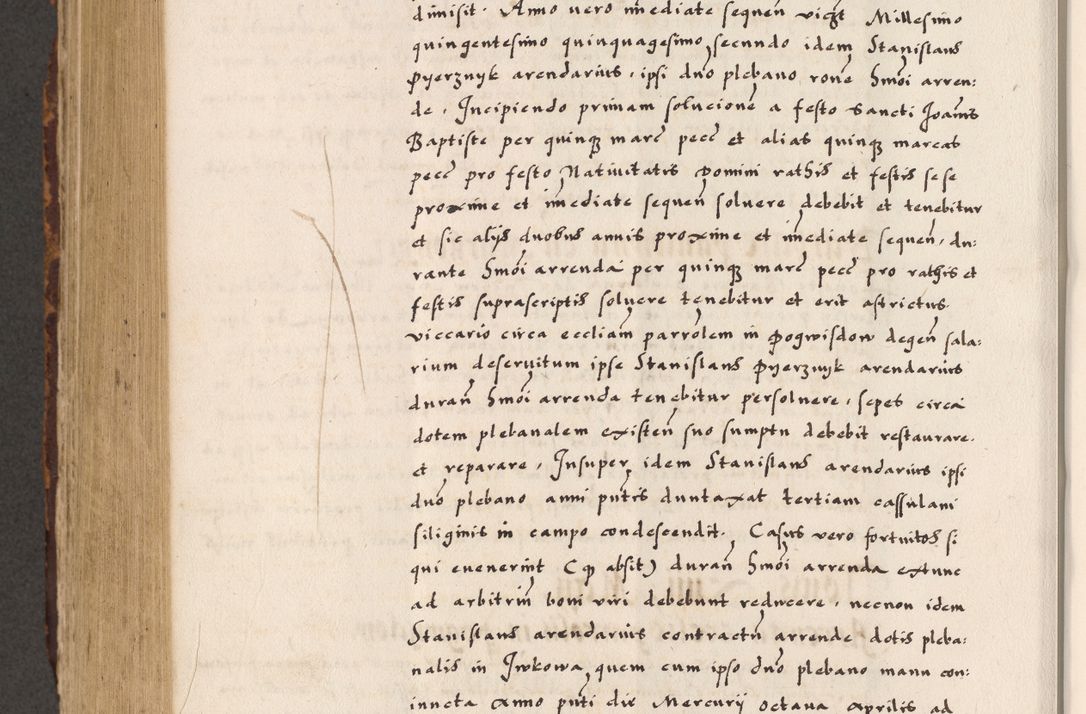 dimisit. Anno vero imediate sequen̄ vigt Millesimo
quingentesimo quinquagesimo secundo idem Stanislaus
Pyerznyk arendarius, ipsi dn̄o plebano ron̄e hmōi arren:
de, Incipiendo primam solucionē a festo Sancti Joan̄is
Baptiste per quinqꝫ marc̄ pecc̄ et alias quinqꝫ marcas
pecc̄ pro festo Nativitatis Domini rathis et festis sese
proxime et imediate sequen̄ soluere debebit et tenebitur
et sic alijs duobus annis proxime et imediate sequen̄, du:
rante hmōi arrenda per quinqꝫ marc̄ pecc̄ pro rathis et
festis suprascriptis soluere tenebitur et erit astrictus.
viccario circa eccliam parrōlem in Pogwisdow degen̄ sala:
rium deseruitum ipse Stanislaus Pyerznyk arendarius
duran̄ hmōi arrenda tenebitur persoluere, sepes circa
dotem plebanalem existen̄ suo sumptu debebit restaurare.
et reparare, Insuper idem Stanislaus arendarius ipsi
dn̄o plebano anni pn̄tis duntaxat tertiam cassulam
siliginis in campo condescendit. Casus vero fortuitos si
qui evenerint (qꝫ absit) duran̄ hmōi arrenda extunc
ad arbitriū boni viri debebunt reducere, necnon idem
Stanislaus arendarius contractū arrende dotis pleba:
nalis in Iwkowa quem cum ipso dn̄o plebano manu con:
iuncta Anno pn̄ti die Mercurij octava Aprilis ad